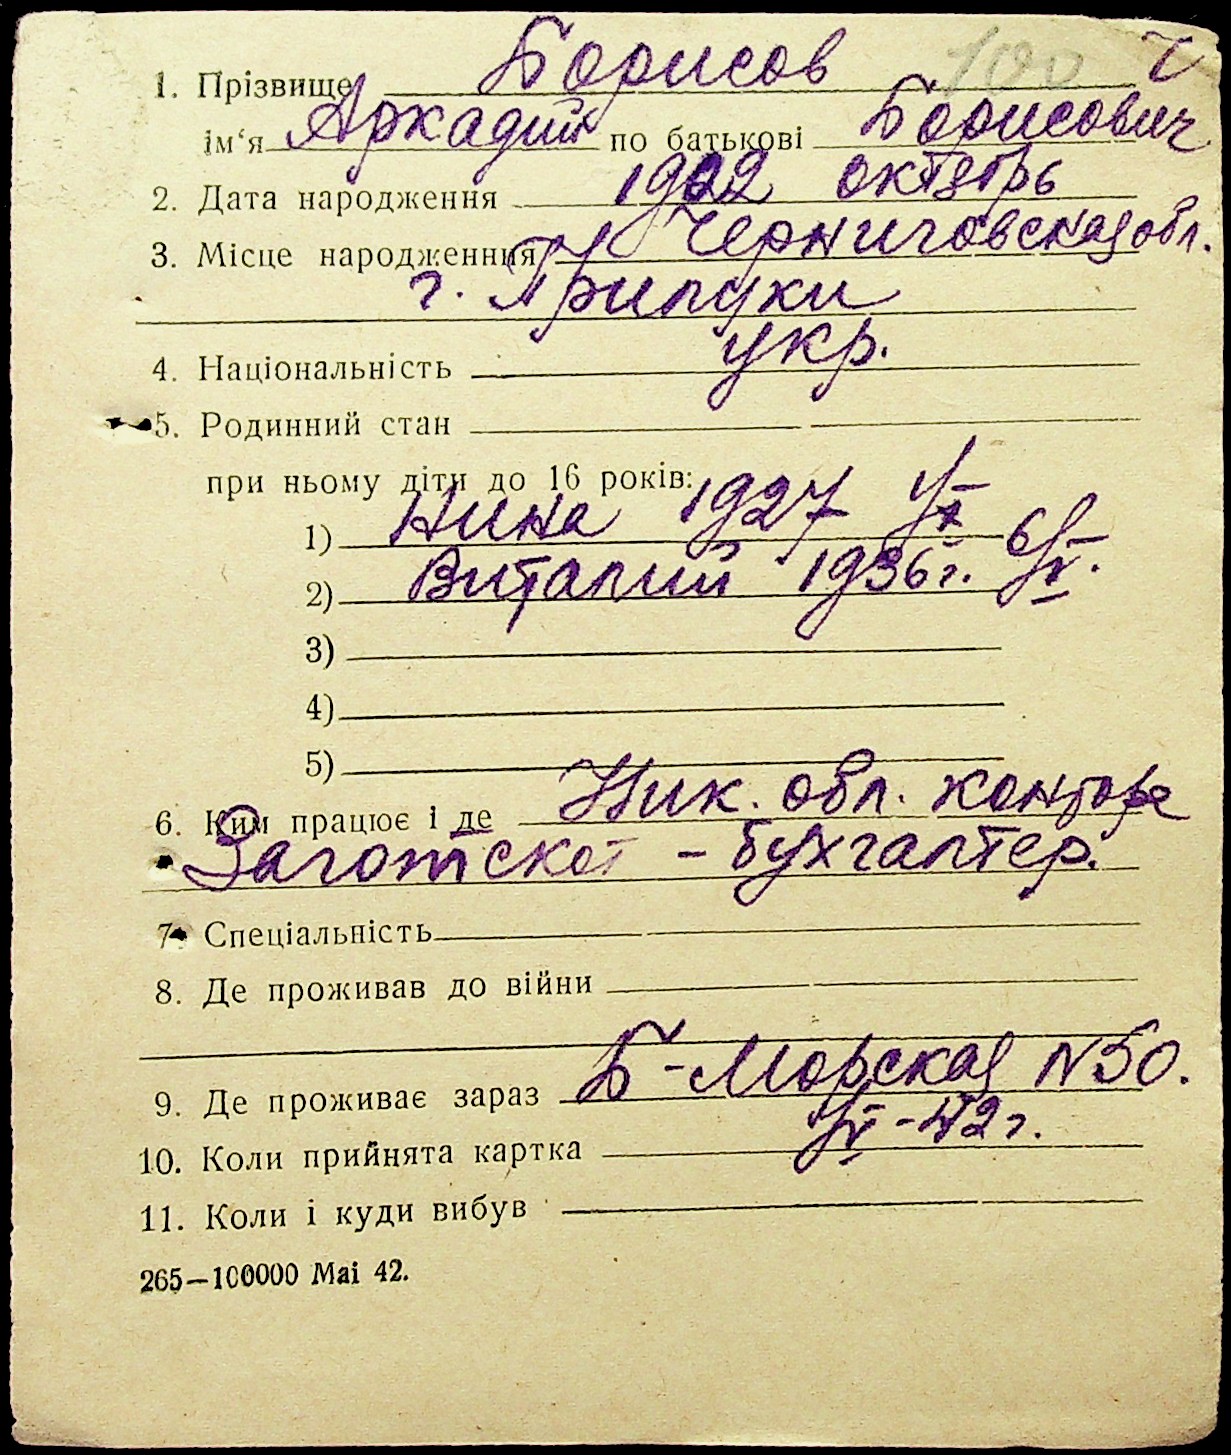 100
1. Прізвище Борисов
ім‘я Аркадий по батькові Борисович
2. Дата народження 1902 октябрь
3. Місце народженння Черниговская обл.
г. Прилуки
4. Національність укр.
5. Родинний стан
при ньому діти до 16 років:
1) Нина 1927
2) Виталий 1936г. 6/IV.
3)
4)
5)
6. Ким працює і де Ник. обл. контора
Заготскот – бухгалтер.
7. Спеціальність
8. Де проживав до війни
9. Де проживає зараз Б-Морская N50.
10. Коли прийнята картка IV-42г.
11. Коли і куди вибув
265—100000 Mai 42.